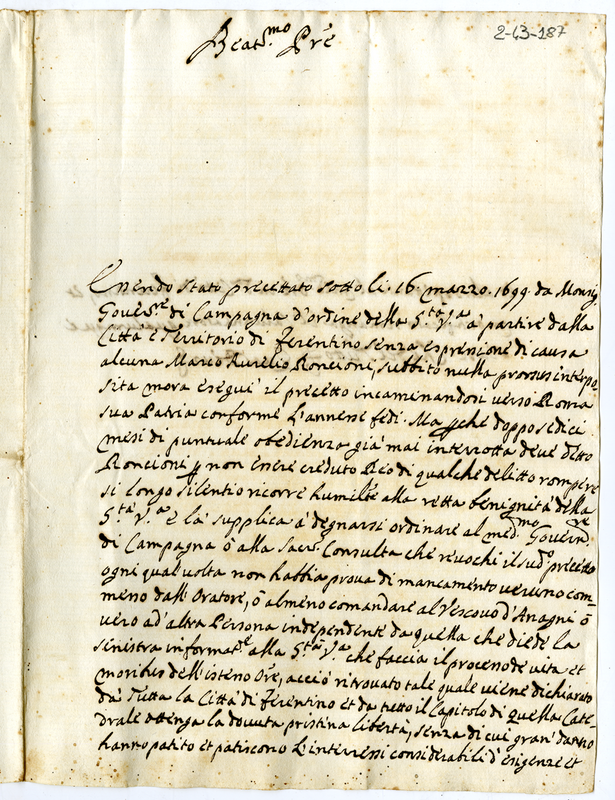 2-43-187
Beat.mo Pre
Essendo stato precettato sotto li 16. marzo. 1699. da Monsig.
Govern.re di Campagna d'ordine della S.tà V.a à partire dalla
Città e Territorio di Ferentino senza espressione di causa
alcuna Marco Aurelio Roncioni, subbito nulla prorsus interpo-
sita mora eseguì il precetto incaminandosi verso Roma
sua Patria conforme l'annesse fedi. Ma perche doppo sedici
mesi di puntuale obedienza già mai interrotta deve detto
Roncioni p non essere creduto Reo di qualche delitto rompere
si longo silentio ricorre humilte alla retta benignità della
S.tà V.a e la supplica à degnarsi ordinare al med.mo Govern.re
di Campagna ò alla Sacr. Consulta che revochi il sud.o precetto
ogni qual volta non habbia prova di mancamento veruno com-
meno dall'Oratore, ò almeno comandare al Vescovo d'Anagni ò
vero ad'altra Persona independente da quella che diede la
sinistra informat.e alla S.tà V.a che faccia il processo de vita et
moribus dell'istesso Ore, acciò ritrovato tale quale viene dichiarato
dà Tutta la Città di Ferentino et da tutto il Capitolo di quella Cate-
drale ottenga la dovuta pristina libertà, senza di cui gran' danno
hanno patito et patiscono l'interessi considerabili d'esigenze et